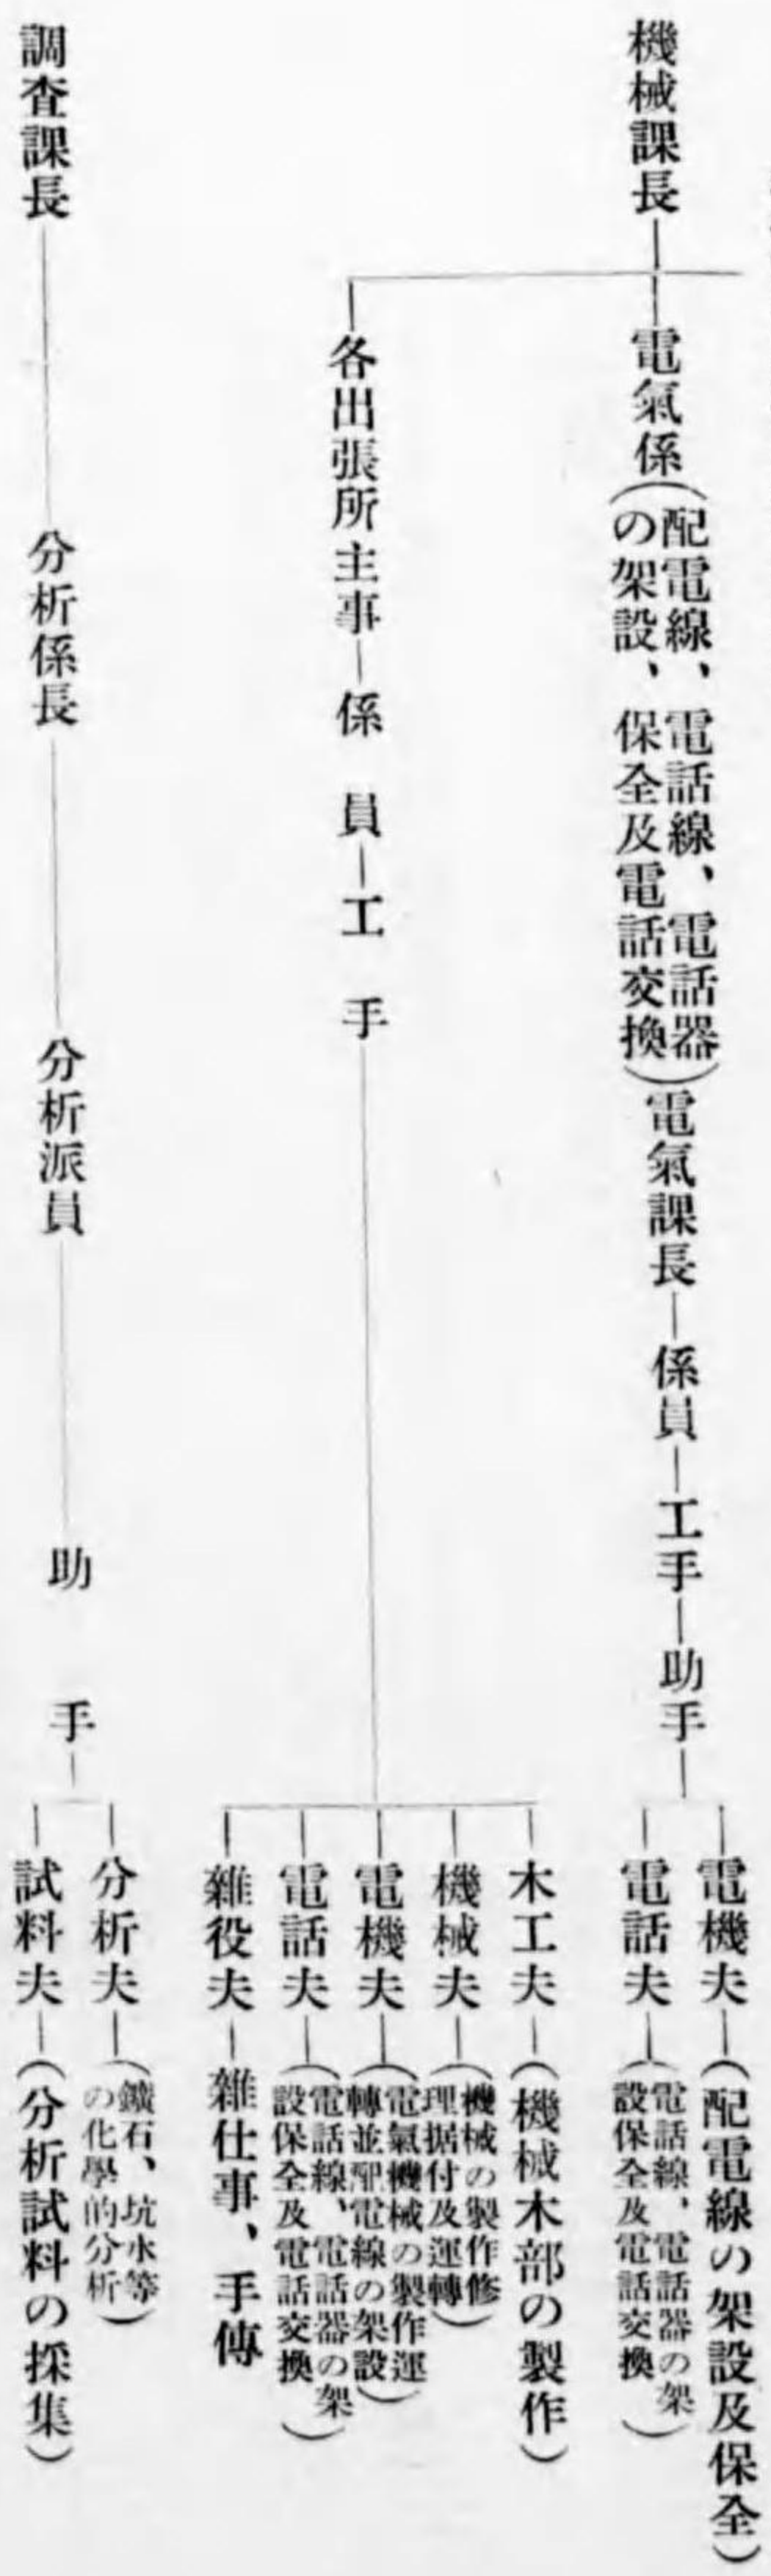 機械課長
電氣係
(配電線、電話線、電話器
の架設、保全及電話交換)
電氣課長
係員
工手
助手
電機夫
(配電線の架設及保全)
電話夫
(電話線、電話器の架
設保全及電話交換)
各出張所主事
係員
工手
木工夫
(機械木部の製作)
機械夫
(機械の製作修
理据付及運轉)
電機夫
(電氣機械の製作運
轉並配電線の架設)
電話夫
(電話線、電話器の架
設保全及電話交換)
雜役夫
雜仕事、手傳
調査課長
分析係長
分析派員
助手
分析夫
(鑛石、坑水等
の化學的分析)
試料夫
(分析試料の採集)